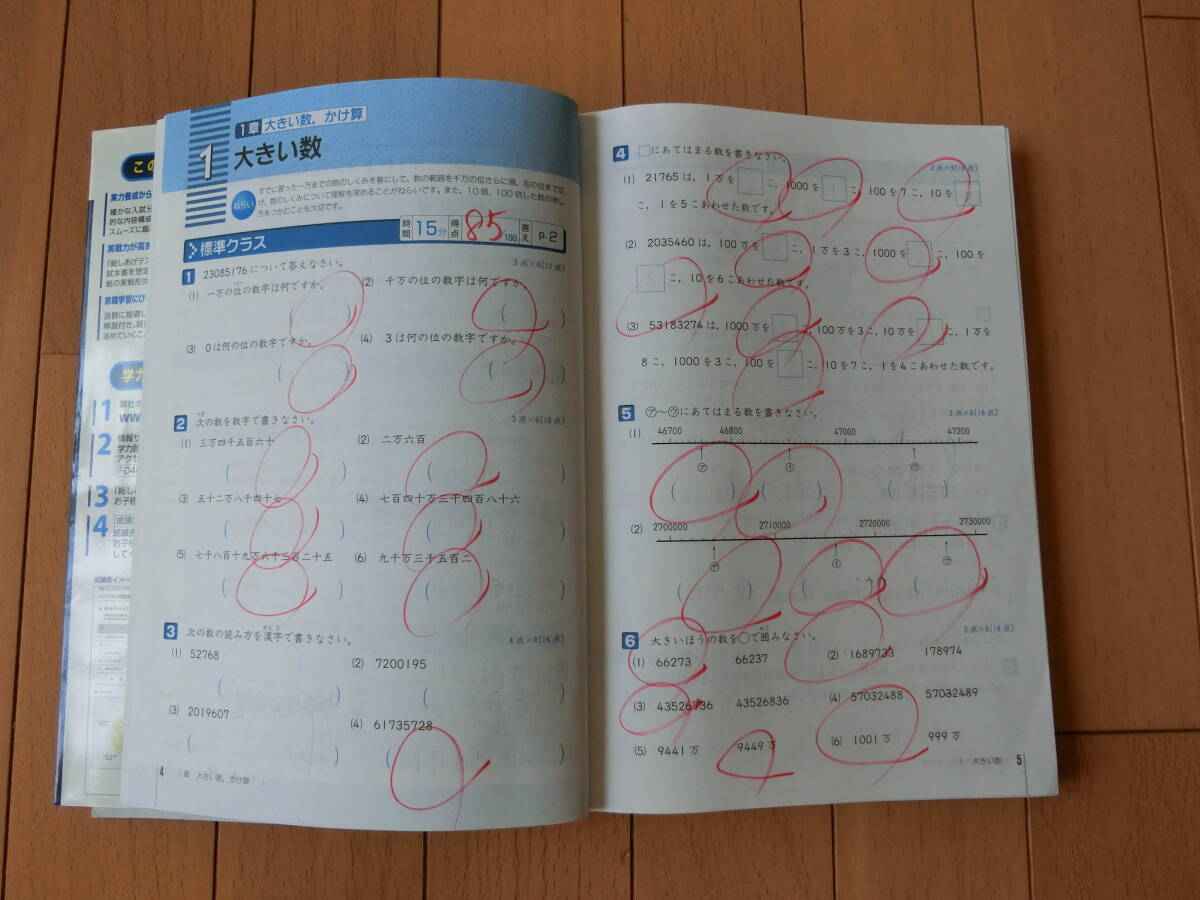 この
実力養成から
確かな入試分
的な内容構成
スムーズに臨
実戦力が高ま
「総しあげテス
試本番を想定
紙の実戦形式
家庭学習にぴ
抜群に指導し
解説付き。疑
高めていくこ
学力
1 弊社ホ
WWW
2 情報サ
学力診
アクセ
3 「総しあ
お子様
4 成績表
成績表
お子様
してく
成績表イメー
1章 大きい数，かけ算
1 大きい数
ねらい すでに習った一万までの数のしくみを基にして，数の範囲を千万の位さらに億，兆の位まで広
げ，数のしくみについて理解を深めることがねらいです。また，10倍，100倍した数の表し
方をつかむことも大切です。
標準クラス 時間 15分 得点 85/100 答え p.2
1 23085176について答えなさい。 3点×4〔12点〕
(1) 一万の位の数字は何ですか。 (2) 千万の位の数字は何ですか。
(3) 0は何の位の数字ですか。 (4) 3は何の位の数字ですか。
2 次の数を数字で書きなさい。 3点×6〔18点〕
(1) 三万四千五百六十 (2) 二万六百
(3) 五十二万八千四十七 (4) 七百四十万三千四百八十六
(5) 七千八百十九万六千三百二十五 (6) 九千万三千五百二
3 次の数の読み方を漢字で書きなさい。 4点×4〔16点〕
(1) 52768 (2) 7200195
(3) 2019607 (4) 61735728
4 1章 大きい数，かけ算
4 □にあてはまる数を書きなさい。 2点×9〔18点〕
(1) 21765は，1万を□こ，1000を□こ，100を7こ，10を□
こ，1を5こあわせた数です。
(2) 2035460は，100万を□こ，1万を3こ，1000を□こ，100を
□こ，10を6こあわせた数です。
(3) 53183274は，1000万を□こ，100万を3こ，10万を□こ，1万を
8こ，1000を3こ，100を□こ，10を7こ，1を4こあわせた数です。
5 ㋐〜㋒にあてはまる数を書きなさい。 3点×6〔18点〕
(1) 46700 46800 47000 47200
㋐ ㋑ ㋒
(2) 2700000 2710000 2720000 2730000
㋐ ㋑ ㋒
6 大きいほうの数を○で囲みなさい。 3点×6〔18点〕
(1) 66273 66237 (2) 1689733 178974
(3) 43526736 43526836 (4) 57032488 57032489
(5) 9441万 9449万 (6) 1001万 999万
1 大きい数 5